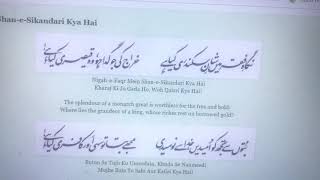 Shan-e-Sikandari Kya Hai
نگاہِ فقر میں شانِ سکندری کیا ہے
خراج کی جو گدا ہو، وہ قیصری کیا ہے
Nigah-e-Faqr Mein Shan-e-Sikandari Kya Hai
Kharaj Ki Jo Gada Ho, Woh Qaisri Kya Hai!
The splendour of a monarch great is worthless for the free and bold:
Where lies the grandeur of a king, whose riches rest on borrowed gold?
بتوں سے تجھ کو امیدیں، خدا سے نومیدی
مجھے بتا تو سہی اور کافری کیا ہے
Buton Se Tujh Ko Umeedain, Khuda Se Naumeedi
Mujhe Bata To Sahi Aur Kafiri Kya Hai!